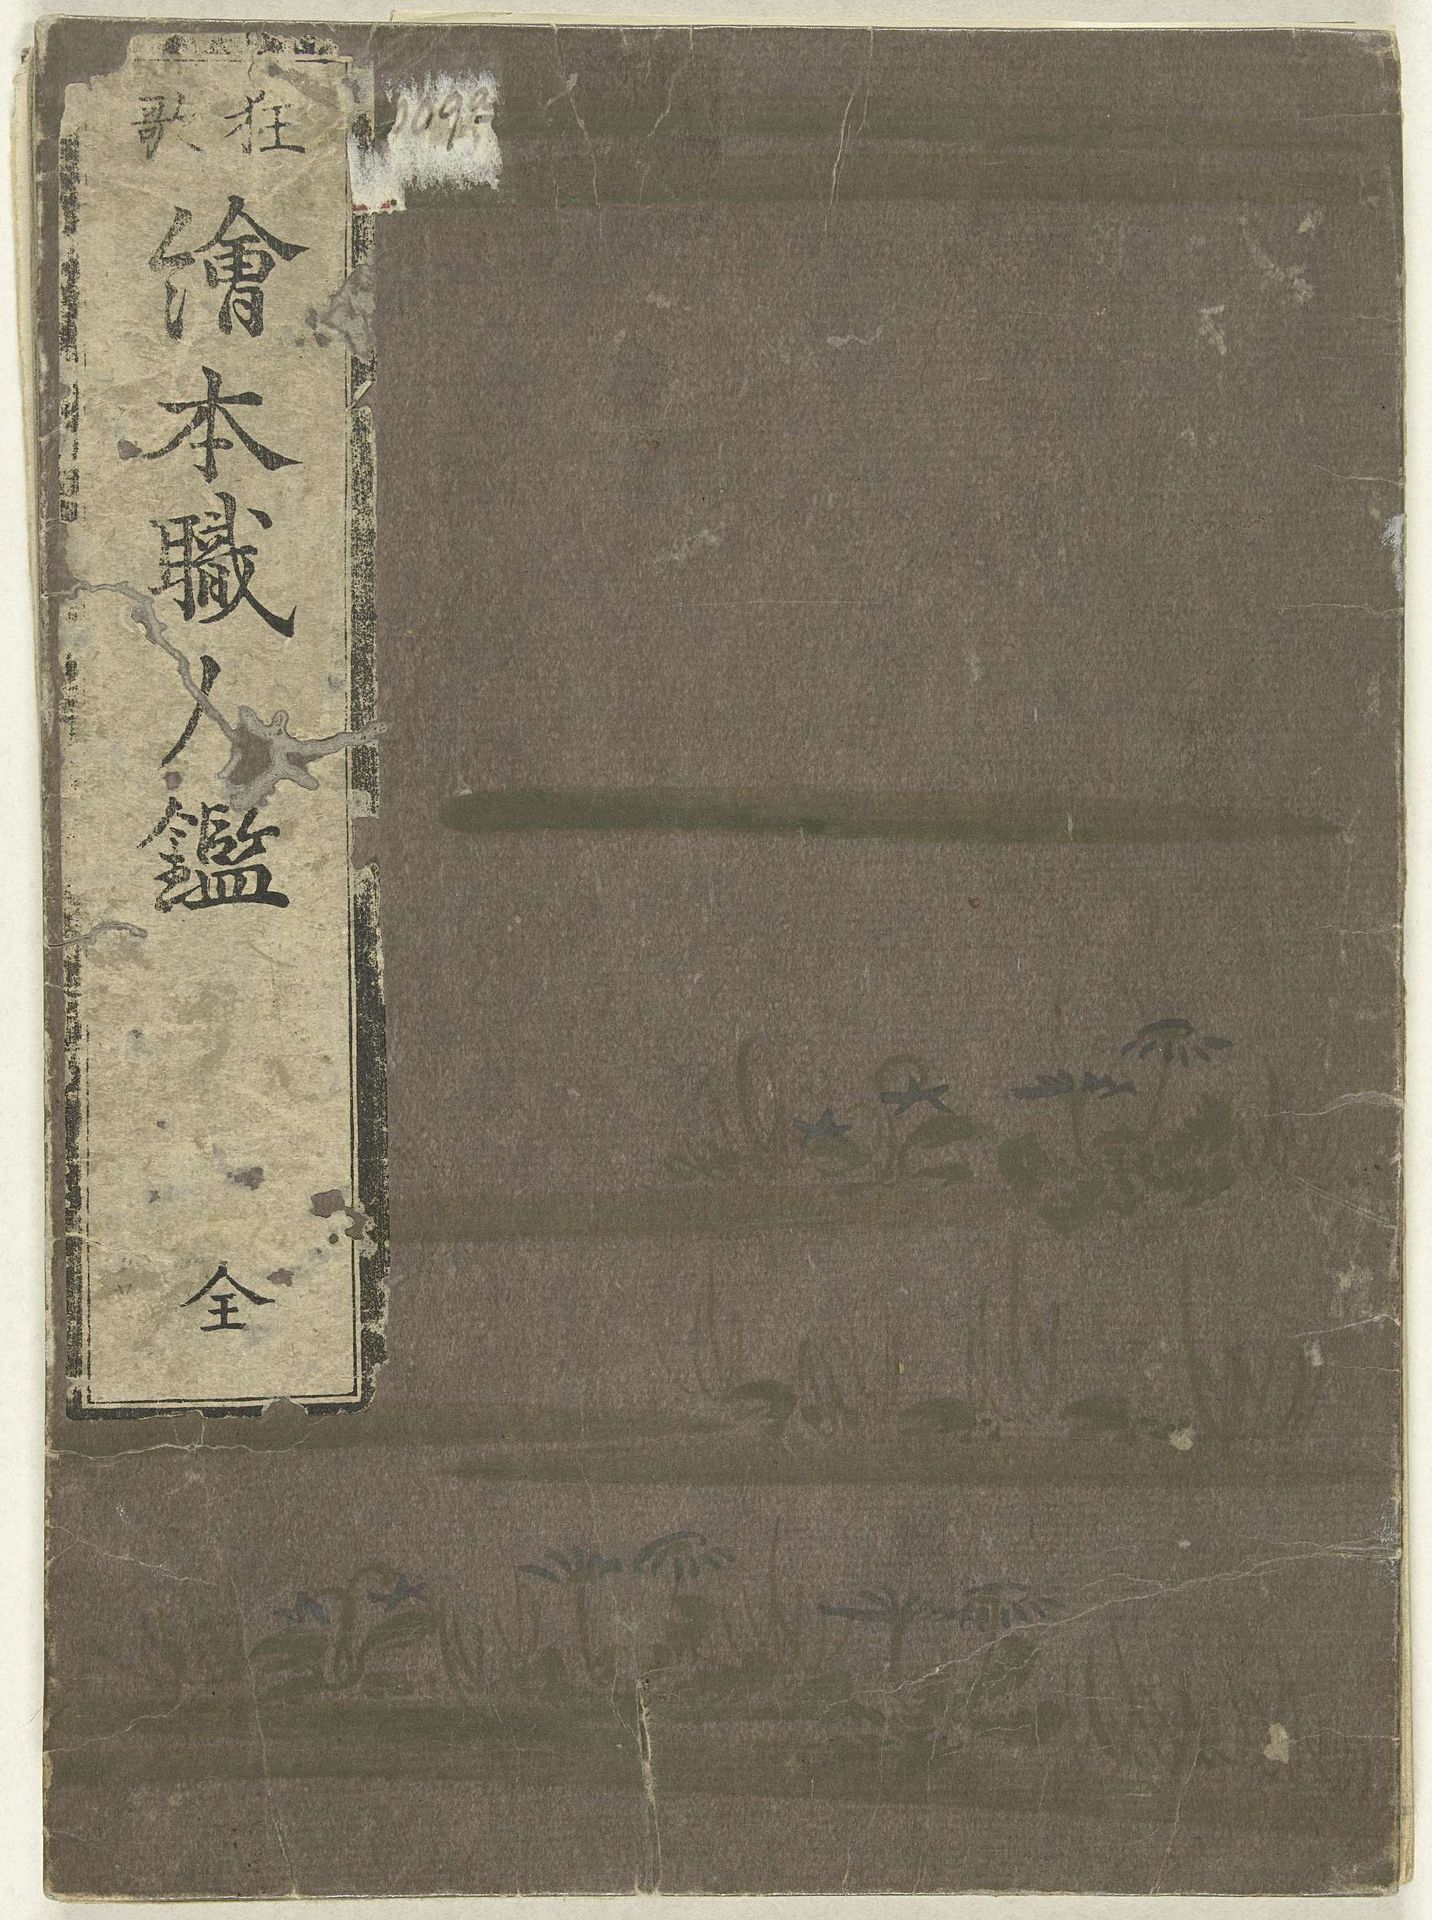 狂歌
繪本職人鑑
全
109a